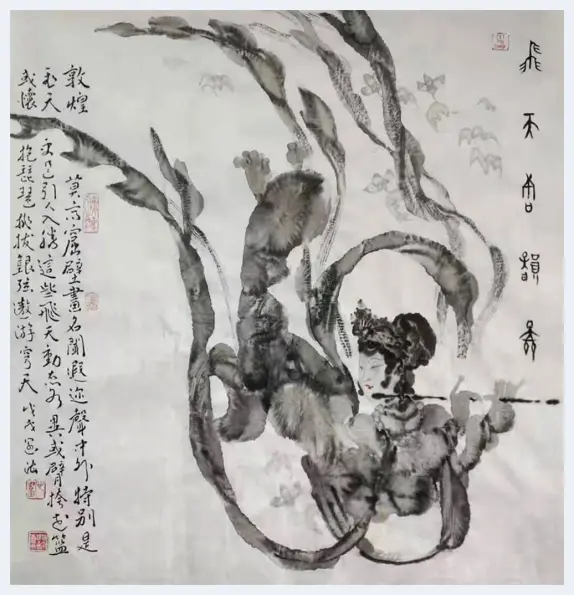 飛天韻
敦煌莫高窟壁畫名聞遐迩聲中外特别是
飞天更是引人入勝這些飛天動态各異或臂挎花籃
或懷抱琵琶撥銀弦遨游穹天戊戌